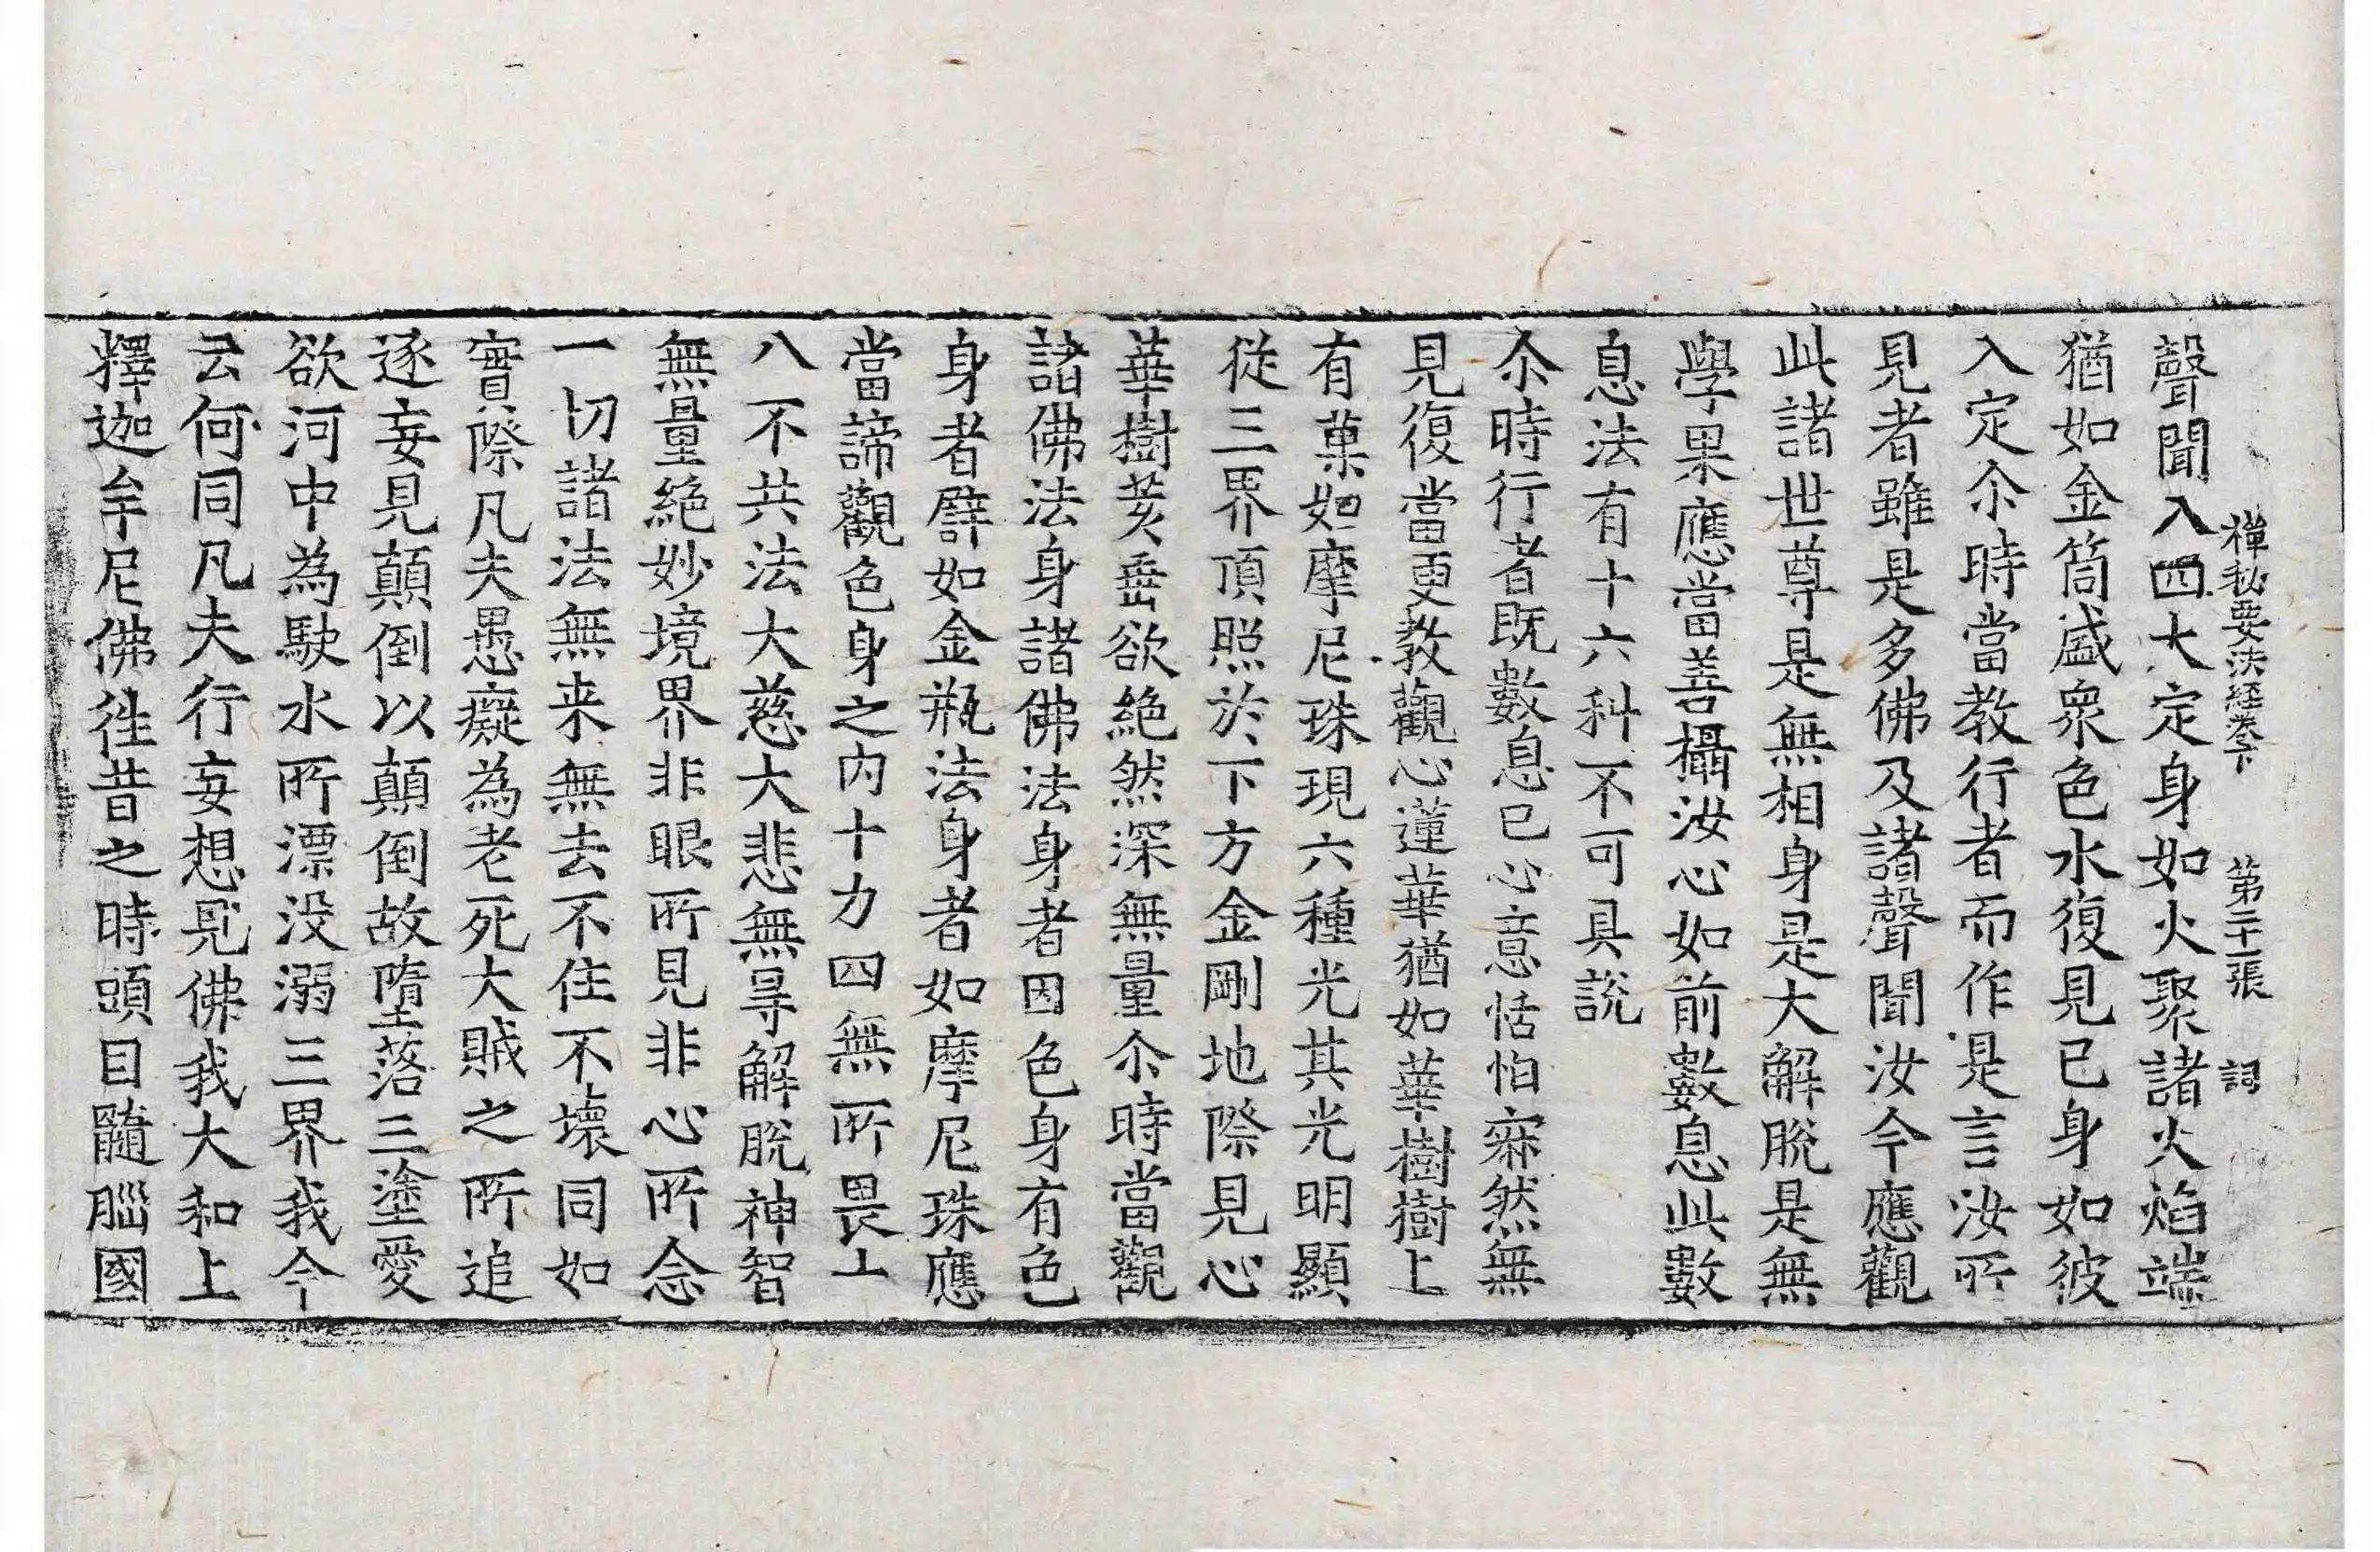 禪秘要法經卷下 第二十一張 詞
聲聞入四大定身如火聚諸火焰端
猶如金筒盛衆色水復見已身如彼
入定尒時當教行者而作是言汝所
見者雖是多佛及諸聲聞汝今應觀
此諸世尊是無相身是大解脫是無
學果應當善攝汝心如前數息此數
息法有十六科不可具說
尒時行者既數息已心意恬怕寂然無
見復當更教觀心蓮華猶如華樹樹上
有菓如摩尼珠現六種光其光明顯
從三界頂照於下方金剛地際見心
華樹茇垂欲絕然深無量尒時當觀
諸佛法身諸佛法身者因色身有色
身者譬如金瓶法身者如摩尼珠應
當諦觀色身之内十力四無所畏十
八不共法大慈大悲無㝵解脫神智
無量絕妙境界非眼所見非心所念
一切諸法無来無去不住不壞同如
實際凡夫愚癡為老死大賊之所追
逐妄見顛倒以顛倒故墮落三塗愛
欲河中為駛水所漂没溺三界我今
云何同凡夫行妄想見佛我大和上
釋迦牟尼佛徃昔之時頭目髓腦國